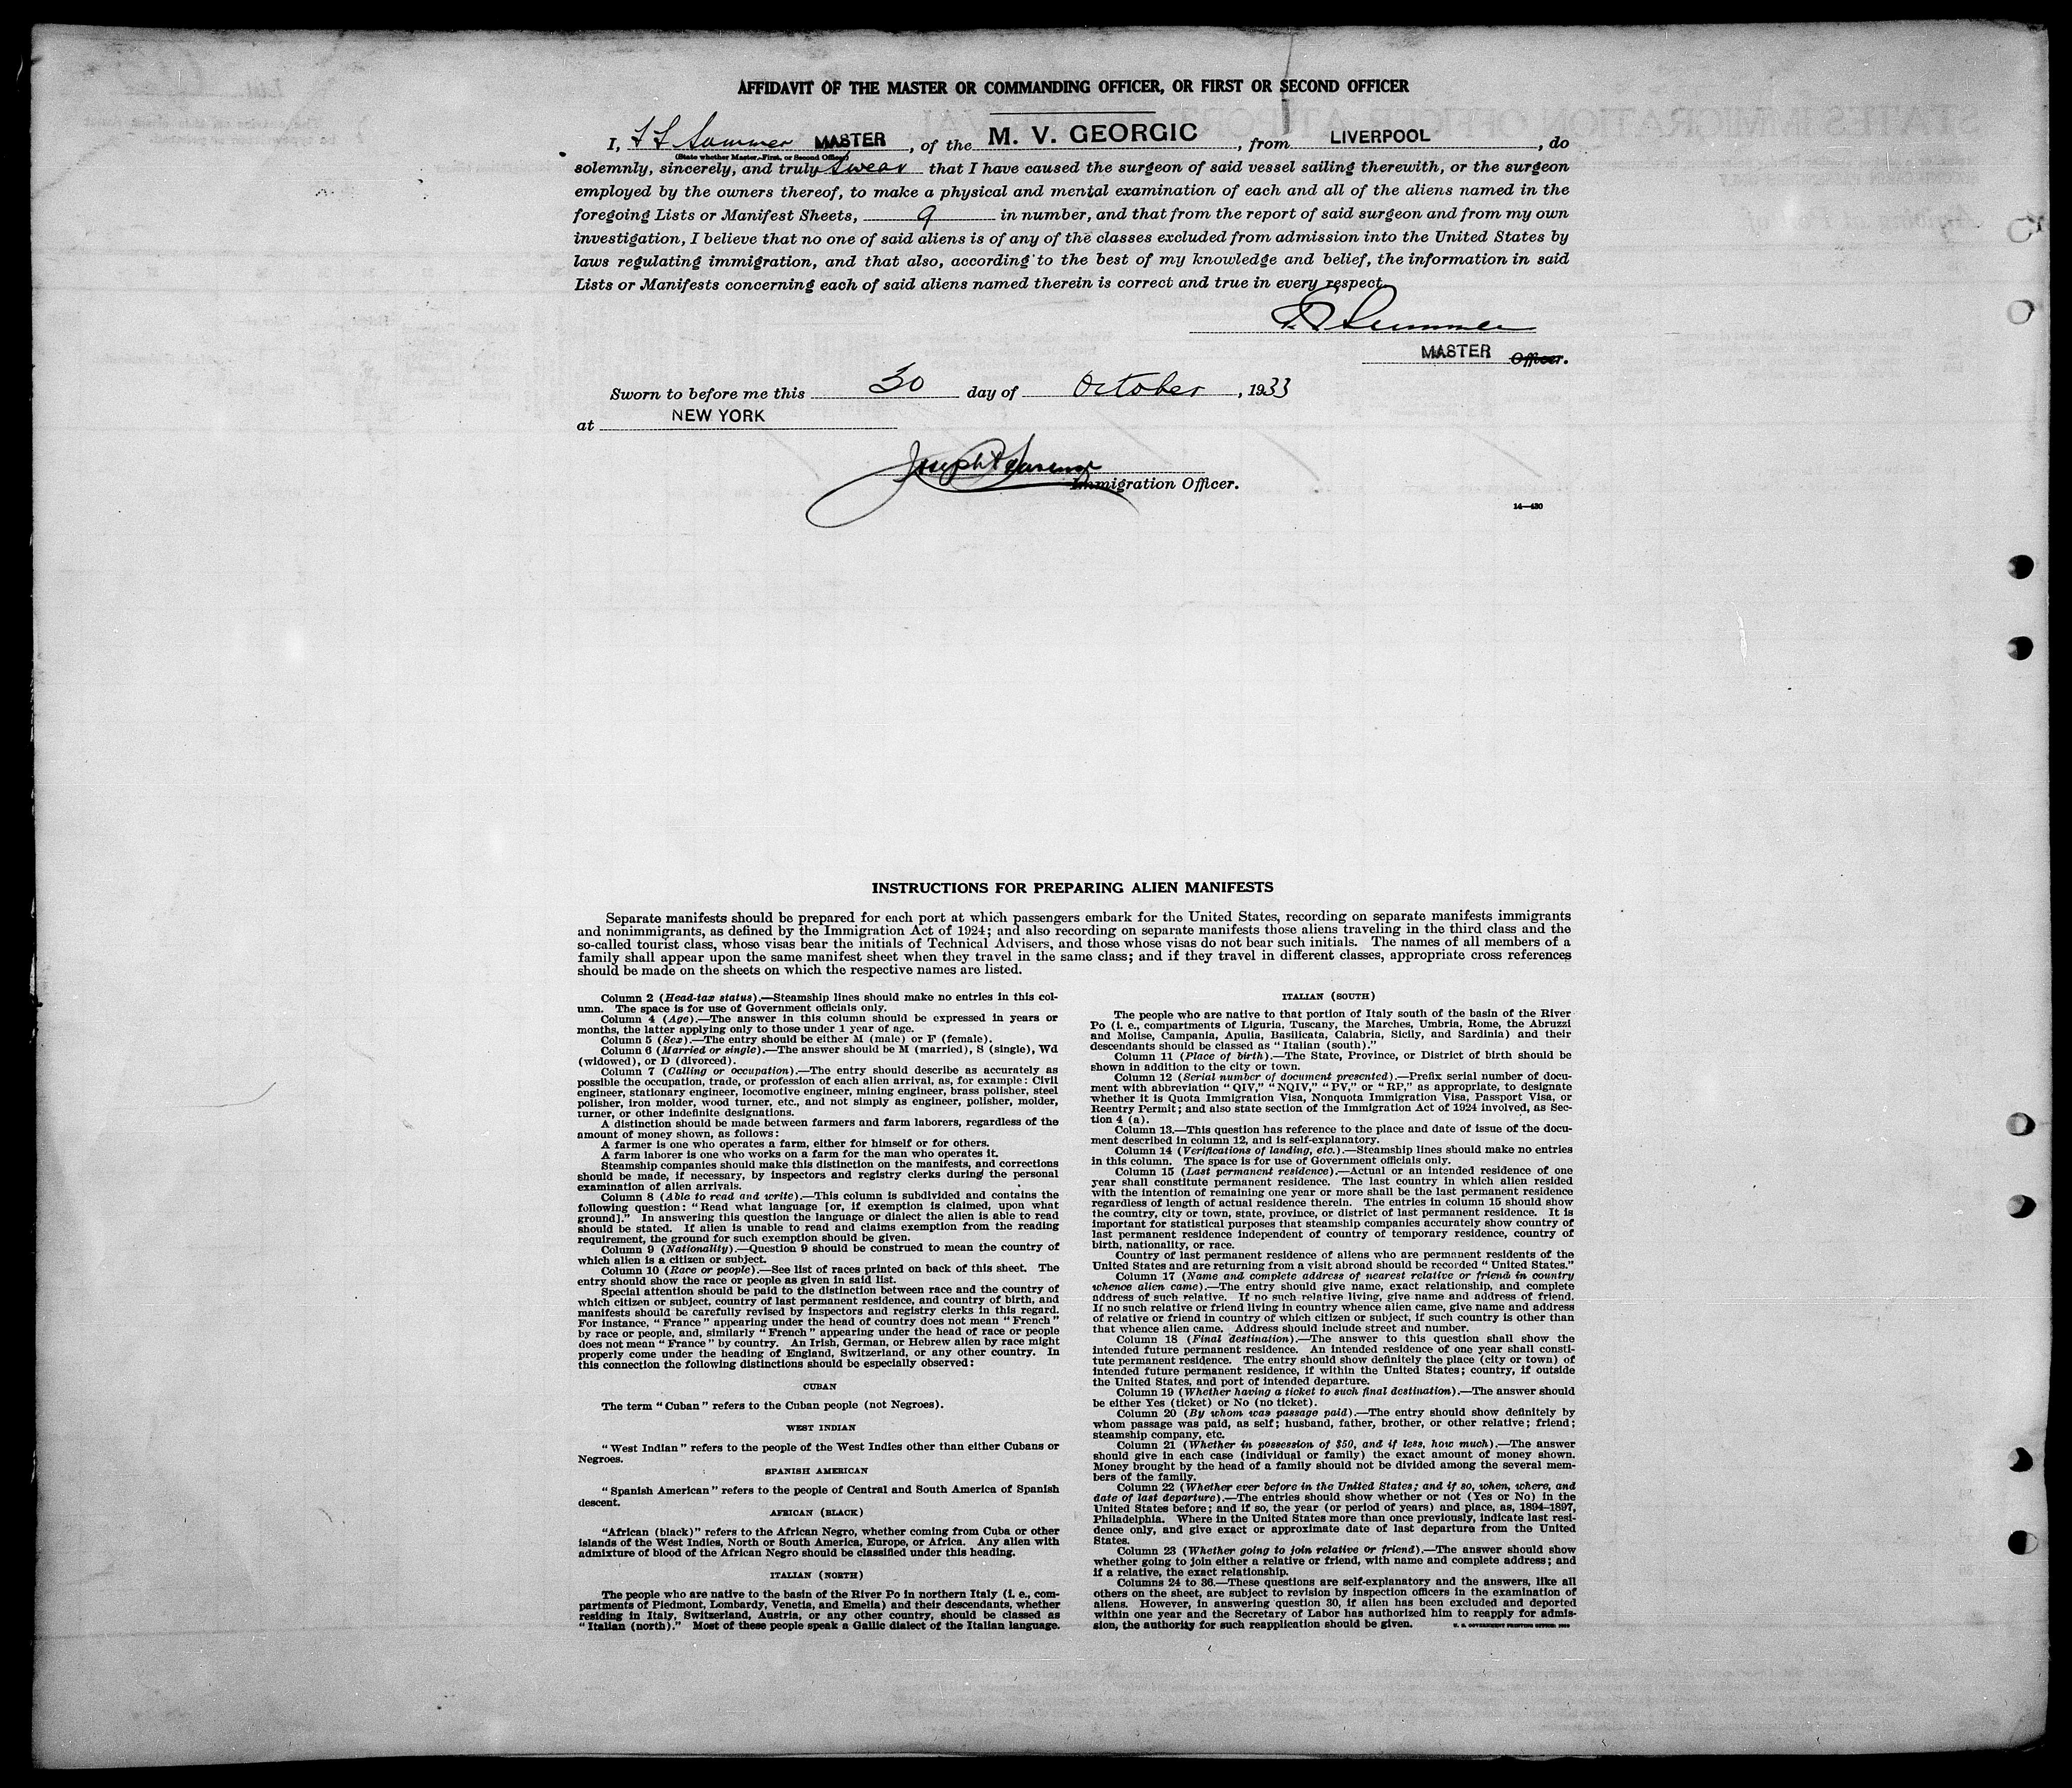 AFFIDAVIT OF THE MASTER OR COMMANDING OFFICER, OR FIRST OR SECOND OFFICER
I, Summer MASTER, of the M. V. GEORGIC, from LIVERPOOL, do
(State whether Master, First, or Second Officer)
solemnly, sincerely, and truly swear that I have caused the surgeon of said vessel sailing therewith, or the surgeon
employed by the owners thereof, to make a physical and mental examination of each and all of the aliens named in the
foregoing Lists or Manifest Sheets, 9 in number, and that from the report of said surgeon and from my own
investigation, I believe that no one of said aliens is of any of the classes excluded from admission into the United States by
laws regulating immigration, and that also, according to the best of my knowledge and belief, the information in said
Lists or Manifests concerning each of said aliens named therein is correct and true in every respect.
Summer
MASTER Officer.
Sworn to before me this 30 day of October, 1933
at NEW YORK
Joseph
Immigration Officer.
14—430
INSTRUCTIONS FOR PREPARING ALIEN MANIFESTS
Separate manifests should be prepared for each port at which passengers embark for the United States, recording on separate manifests immigrants
and nonimmigrants, as defined by the Immigration Act of 1924; and also recording on separate manifests those aliens traveling in the third class and the
so-called tourist class, whose visas bear the initials of Technical Advisers, and those whose visas do not bear such initials. The names of all members of a
family shall appear upon the same manifest sheet when they travel in the same class; and if they travel in different classes, appropriate cross references
should be made on the sheets on which the respective names are listed.
Column 2 (Head-tax status).—Steamship lines should make no entries in this col-
umn. The space is for use of Government officials only.
Column 4 (Age).—The answer in this column should be expressed in years or
months, the latter applying only to those under 1 year of age.
Column 5 (Sex).—The entry should be either M (male) or F (female).
Column 6 (Married or single).—The answer should be M (married), S (single), Wd
(widowed), or D (divorced).
Column 7 (Calling or occupation).—The entry should describe as accurately as
possible the occupation, trade, or profession of each alien arrival, as, for example: Civil
engineer, stationary engineer, locomotive engineer, mining engineer, brass polisher, steel
polisher, iron molder, wood turner, etc., and not simply as engineer, polisher, molder,
turner, or other indefinite designations.
A distinction should be made between farmers and farm laborers, regardless of the
amount of money shown, as follows:
A farmer is one who operates a farm, either for himself or for others.
A farm laborer is one who works on a farm for the man who operates it.
Steamship companies should make this distinction on the manifests, and corrections
should be made, if necessary, by inspectors and registry clerks during the personal
examination of alien arrivals.
Column 8 (Able to read and write).—This column is subdivided and contains the
following question: "Read what language [or, if exemption is claimed, upon what
ground]." In answering this question the language or dialect the alien is able to read
should be stated. If alien is unable to read and claims exemption from the reading
requirement, the ground for such exemption should be given.
Column 9 (Nationality).—Question 9 should be construed to mean the country of
which alien is a citizen or subject.
Column 10 (Race or people).—See list of races printed on back of this sheet. The
entry should show the race or people as given in said list.
Special attention should be paid to the distinction between race and the country of
which citizen or subject, country of last permanent residence, and country of birth, and
manifests should be carefully revised by inspectors and registry clerks in this regard.
For instance, "France" appearing under the head of country does not mean "French"
by race or people, and, similarly "French" appearing under the head of race or people
does not mean "France" by country. An Irish, German, or Hebrew alien by race might
properly come under the heading of England, Switzerland, or any other country. In
this connection the following distinctions should be especially observed:
CUBAN
The term "Cuban" refers to the Cuban people (not Negroes).
WEST INDIAN
"West Indian" refers to the people of the West Indies other than either Cubans or
Negroes.
SPANISH AMERICAN
"Spanish American" refers to the people of Central and South America of Spanish
descent.
AFRICAN (BLACK)
"African (black)" refers to the African Negro, whether coming from Cuba or other
islands of the West Indies, North or South America, Europe, or Africa. Any alien with
admixture of blood of the African Negro should be classified under this heading.
ITALIAN (NORTH)
The people who are native to the basin of the River Po in northern Italy (i. e., com-
partments of Piedmont, Lombardy, Venetia, and Emelia) and their descendants, whether
residing in Italy, Switzerland, Austria, or any other country, should be classed as
"Italian (north)." Most of these people speak a Gallic dialect of the Italian language.
ITALIAN (SOUTH)
The people who are native to that portion of Italy south of the basin of the River
Po (i. e., compartments of Liguria, Tuscany, the Marches, Umbria, Rome, the Abruzzi
and Molise, Campania, Apulia, Basilicata, Calabria, Sicily, and Sardinia) and their
descendants should be classed as "Italian (south)."
Column 11 (Place of birth).—The State, Province, or District of birth should be
shown in addition to the city or town.
Column 12 (Serial number of document presented).—Prefix serial number of docu-
ment with abbreviation "QIV," "NQIV," "PV," or "RP," as appropriate, to designate
whether it is Quota Immigration Visa, Nonquota Immigration Visa, Passport Visa, or
Reentry Permit; and also state section of the Immigration Act of 1924 involved, as Sec-
tion 4 (a).
Column 13.—This question has reference to the place and date of issue of the docu-
ment described in column 12, and is self-explanatory.
Column 14 (Verifications of landing, etc.).—Steamship lines should make no entries
in this column. The space is for use of Government officials only.
Column 15 (Last permanent residence).—Actual or an intended residence of one
year shall constitute permanent residence. The last country in which alien resided
with the intention of remaining one year or more shall be the last permanent residence
regardless of length of actual residence therein. The entries in column 15 should show
the country, city or town, state, province, or district of last permanent residence. It is
important for statistical purposes that steamship companies accurately show country of
last permanent residence independent of country of temporary residence, country of
birth, nationality, or race.
Country of last permanent residence of aliens who are permanent residents of the
United States and are returning from a visit abroad should be recorded "United States."
Column 17 (Name and complete address of nearest relative or friend in country
whence alien came).—The entry should give name, exact relationship, and complete
address of such relative. If no such relative living, give name and address of friend.
If no such relative or friend living in country whence alien came, give name and address
of relative or friend in country of which citizen or subject, if such country is other than
that whence alien came. Address should include street and number.
Column 18 (Final destination).—The answer to this question shall show the
intended future permanent residence. An intended residence of one year shall consti-
tute permanent residence. The entry should show definitely the place (city or town) of
intended future permanent residence, if within the United States; country, if outside
the United States, and port of intended departure.
Column 19 (Whether having a ticket to such final destination).—The answer should
be either Yes (ticket) or No (no ticket).
Column 20 (By whom was passage paid).—The entry should show definitely by
whom passage was paid, as self; husband, father, brother, or other relative; friend;
steamship company, etc.
Column 21 (Whether in possession of $50, and if less, how much).—The answer
should give in each case (individual or family) the exact amount of money shown.
Money brought by the head of a family should not be divided among the several mem-
bers of the family.
Column 22 (Whether ever before in the United States; and if so, when, where, and
date of last departure).—The entries should show whether or not (Yes or No) in the
United States before; and if so, the year (or period of years) and place, as, 1894–1897,
Philadelphia. Where in the United States more than once previously, indicate last resi-
dence only, and give exact or approximate date of last departure from the United
States.
Column 23 (Whether going to join relative or friend).—The answer should show
whether going to join either a relative or friend, with name and complete address; and
if a relative, the exact relationship.
Columns 24 to 36.—These questions are self-explanatory and the answers, like all
others on the sheet, are subject to revision by inspection officers in the examination of
aliens. However, in answering question 30, if alien has been excluded and deported
within one year and the Secretary of Labor has authorized him to reapply for admis-
sion, the authority for such reapplication should be given.
U. S. GOVERNMENT PRINTING OFFICE: